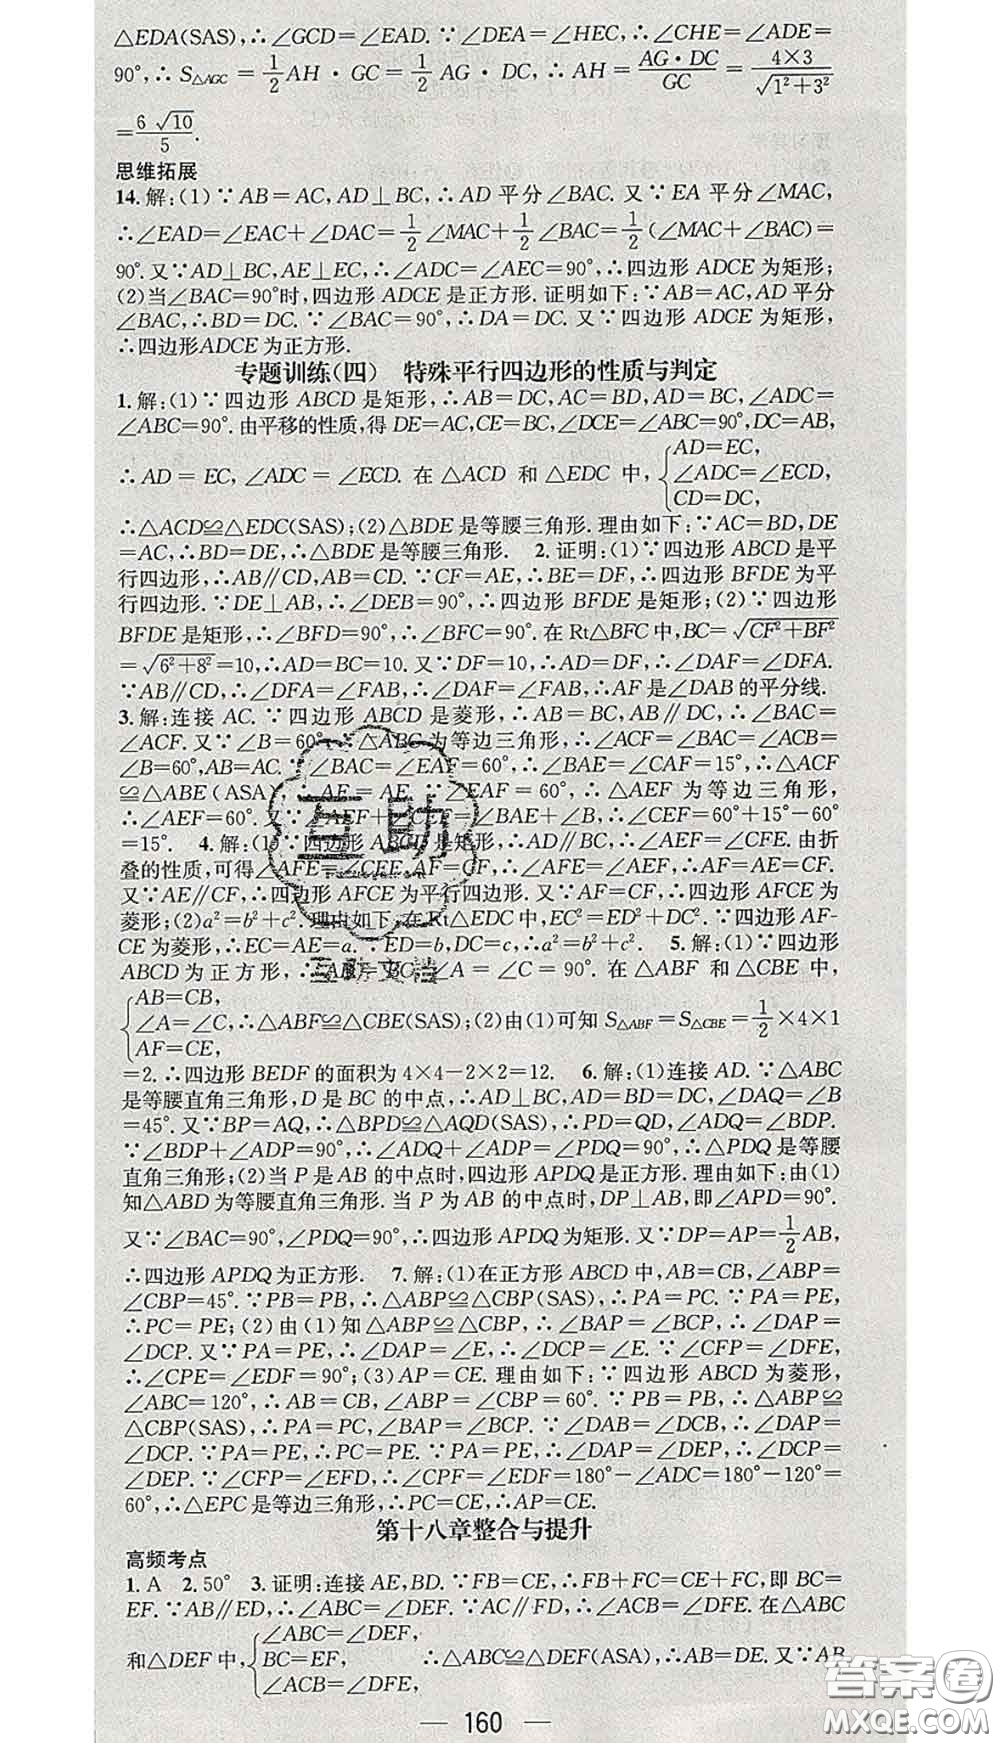 △EDA(SAS),∴∠GCD=∠EAD.∵∠DEA=∠HEC,∴∠CHE=∠ADE=
90°,∴S△AGC=1/2AH·GC=1/2AG·DC,∴AH=AG·DC/GC=4×3/√(1²+3²)
=6√10/5.
思维拓展
14.解:(1)∵AB=AC,AD⊥BC,∴AD平分∠BAC.又∵EA平分∠MAC,
∴∠EAD=∠EAC+∠DAC=1/2∠MAC+1/2∠BAC=1/2(∠MAC+∠BAC)=
90°.又∵AD⊥BC,AE⊥EC,∴∠ADC=∠AEC=90°,∴四边形ADCE为矩形;
(2)当∠BAC=90°时,四边形ADCE是正方形.证明如下:∵AB=AC,AD平分
∠BAC,∴BD=DC.∵∠BAC=90°,∴DA=DC.又∵四边形ADCE为矩形,
∴四边形ADCE为正方形.
专题训练(四) 特殊平行四边形的性质与判定
1.解:(1)∵四边形ABCD是矩形,∴AB=DC,AC=BD,AD=BC,∠ADC=
∠ABC=90°.由平移的性质,得DE=AC,CE=BC,∠DCE=∠ABC=90°,DC=AB,
∴AD=EC,∠ADC=∠ECD.在△ACD和△EDC中,{AD=EC,
∠ADC=∠ECD,
CD=DC,
∴△ACD≌△EDC(SAS);(2)△BDE是等腰三角形.理由如下:∵AC=BD,DE
=AC,∴BD=DE,∴△BDE是等腰三角形. 2.证明:(1)∵四边形ABCD是平
行四边形,∴AB∥CD,AB=CD.∵CF=AE,∴BE=DF,∴四边形BFDE为平
行四边形.∵DE⊥AB,∴∠DEB=90°,∴四边形BFDE是矩形;(2)∵四边形
BFDE是矩形,∴∠BFD=90°,∴∠BFC=90°.在Rt△BFC中,BC=√(CF²+BF²)
=√(6²+8²)=10,∴AD=BC=10.又∵DF=10,∴AD=DF,∴∠DAF=∠DFA.
∵AB∥CD,∴∠DFA=∠FAB,∴∠DAF=∠FAB,∴AF是∠DAB的平分线.
3.解:连接AC.∵四边形ABCD是菱形,∴AB=BC,AB∥DC,∴∠BAC=
∠ACF.又∵∠B=60°,∴△ABC为等边三角形,∴∠ACF=∠BAC=∠ACB=
∠B=60°,AB=AC.∵∠BAC=∠EAF=60°,∴∠BAE=∠CAF=15°,∴△ACF
≌△ABE(ASA),∴AE=AF.∵∠EAF=60°,∴△AEF为等边三角形,
∴∠AEF=60°.又∵∠AEF+∠CEF=∠BAE+∠B,∴∠CEF=60°+15°-60°
=15°. 4.解:(1)∵四边形ABCD是矩形,∴AD∥BC,∴∠AEF=∠CFE.由折
叠的性质,可得∠AFE=∠CFE,AF=CF,∴∠AFE=∠AEF,∴AF=AE=CF.
又∵AE∥CF,∴四边形AFCE为平行四边形.又∵AF=CF,∴四边形AFCE为
菱形;(2)a²=b²+c².理由如下:在Rt△EDC中,EC²=ED²+DC².∵四边形AF-
CE为菱形,∴EC=AE=a.∵ED=b,DC=c,∴a²=b²+c². 5.解:(1)∵四边形
ABCD为正方形,∴AB=BC,∠A=∠C=90°.在△ABF和△CBE中,
{AB=CB,
∠A=∠C,∴△ABF≌△CBE(SAS);(2)由(1)可知S△ABF=S△CBE=1/2×4×1
AF=CE,
=2.∴四边形BEDF的面积为4×4-2×2=12. 6.解:(1)连接AD.∵△ABC
是等腰直角三角形,D是BC的中点,∴AD⊥BC,AD=BD=DC,∠DAQ=∠B
=45°.又∵BP=AQ,∴△BPD≌△AQD(SAS),∴PD=QD,∠ADQ=∠BDP.
∵∠BDP+∠ADP=90°,∴∠ADQ+∠ADP=∠PDQ=90°,∴△PDQ是等腰
直角三角形;(2)当P是AB的中点时,四边形APDQ是正方形.理由如下:由(1)
知△ABD为等腰直角三角形.当P为AB的中点时,DP⊥AB,即∠APD=90°.
又∵∠BAC=90°,∠PDQ=90°,∴四边形APDQ为矩形.又∵DP=AP=1/2AB,
∴四边形APDQ为正方形. 7.解:(1)在正方形ABCD中,AB=CB,∠ABP=
∠CBP=45°.∵PB=PB,∴△ABP≌△CBP(SAS),∴PA=PC.∵PA=PE,
∴PC=PE;(2)由(1)知△ABP≌△CBP,∴∠BAP=∠BCP,∴∠DAP=
∠DCP.又∵PA=PE,∴∠DAP=∠E,∴∠DCP=∠E.∵∠CFP=∠DFE,
∴∠CPE=∠EDF=90°;(3)AP=CE.理由如下:∵四边形ABCD为菱形,
∠ABC=120°,∴AB=CB,∠ABP=∠CBP=60°.∵PB=PB,∴△ABP≌
△CBP(SAS),∴PA=PC,∠BAP=∠BCP.∵∠DAB=∠DCB,∴∠DAP=
∠DCP.∵PA=PE,∴PC=PE.∵PA=PE,∴∠DAP=∠DEP,∴∠DCP=
∠DEP.∵∠CFP=∠EFD,∴∠CPF=∠EDF=180°-∠ADC=180°-120°=
60°,∴△EPC是等边三角形,∴PC=CE,∴AP=CE.
第十八章整合与提升
高频考点
1.A 2.50° 3.证明:连接AE,BD.∵FB=CE,∴FB+FC=CE+FC,即BC=
EF.∵AB∥ED,∴∠ABC=∠DEF.∵AC∥FD,∴∠ACB=∠DFE.在△ABC
和△DEF中,{∠ABC=∠DEF,
BC=EF, ∴△ABC≌△DEF(ASA),∴AB=DE.又∵AB
∠ACB=∠DFE,
160
互助
互助文档
答案圈
MXQE.COM